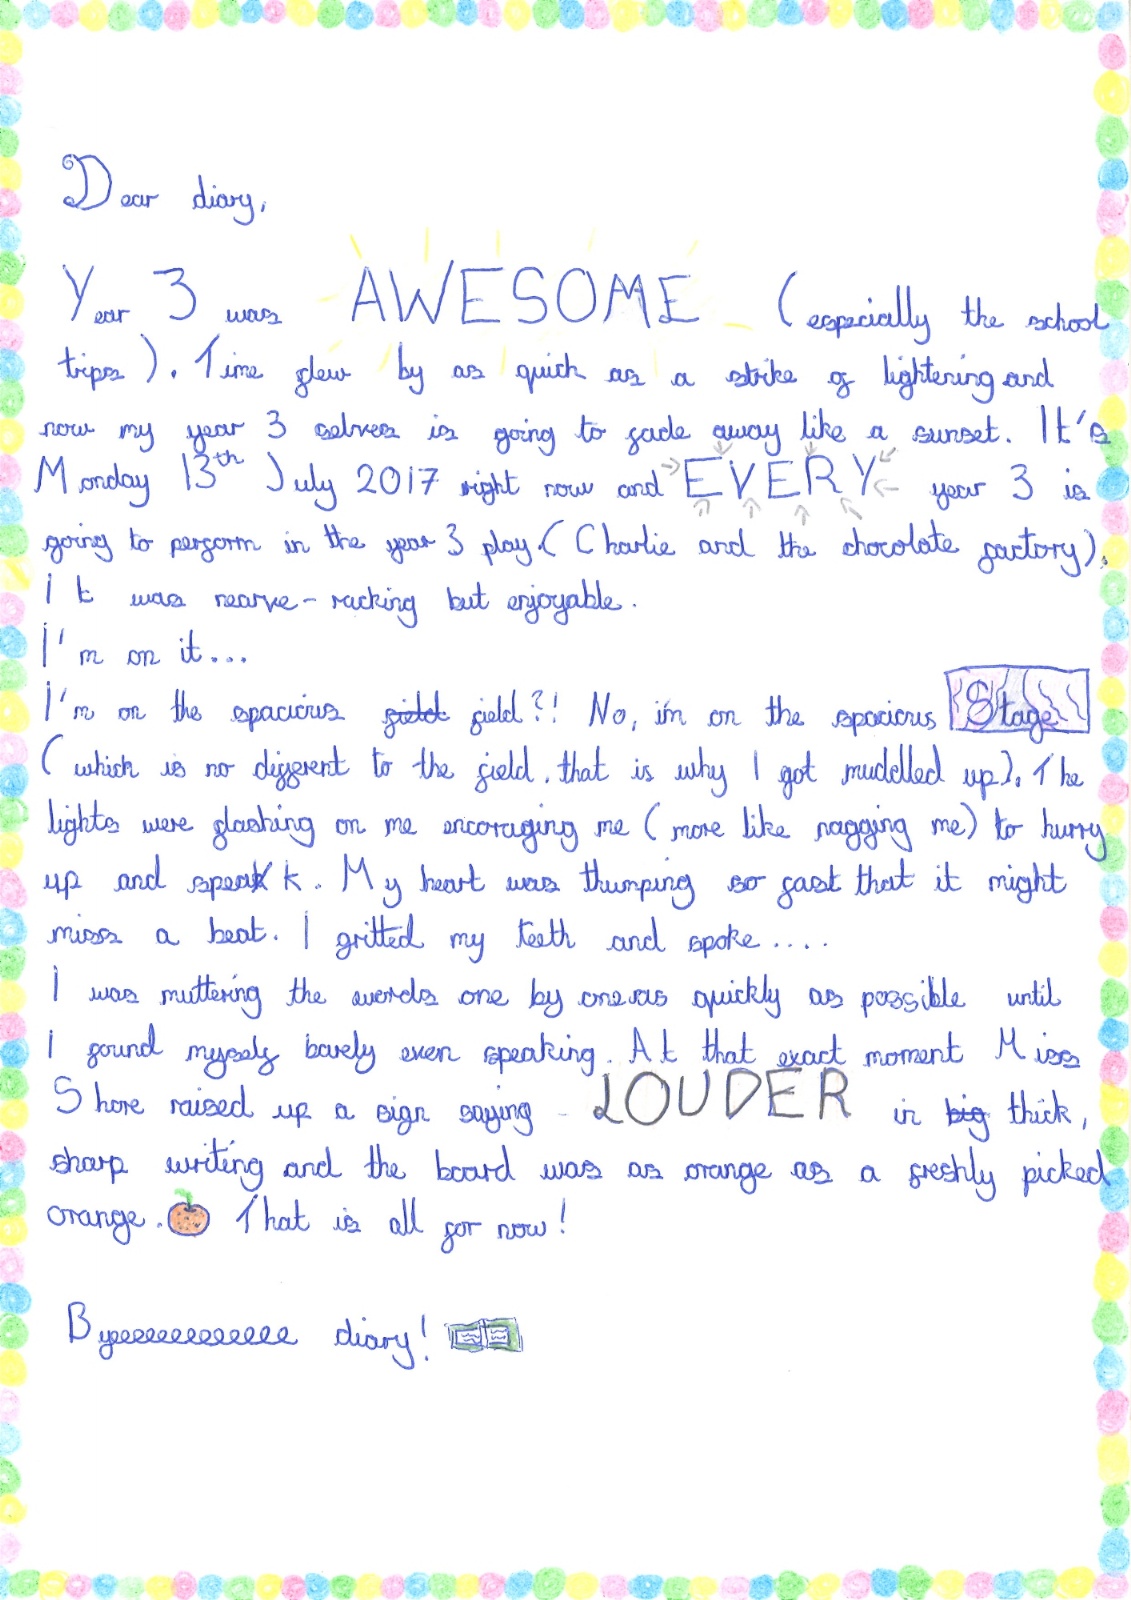 Dear diary,
Year 3 was AWESOME (especially the school
trips). Time flew by as quick as a strike of lightening and
now my year 3 selves is going to fade away like a sunset. It's
Monday 13th July 2017 right now and EVERY year 3 is
going to perform in the year 3 play.(Charlie and the chocolate factory).
It was nearve-racking but enjoyable.
I'm on it...
I'm on the spacious field field?!! No, i'm on the spacious Stage
(which is no different to the field. that is why I got muddled up). The
lights were flashing on me encoraging me (more like nagging me) to hurry
up and speak k. My heart was thumping so fast that it might
miss a beat. I gritted my teeth and spoke....
I was muttering the words one by one as quickly as possible until
I found myself barely even speaking. At that exact moment Miss
Shore raised up a sign saying - LOUDER in big thick,
sharp writing and the board was as orange as a freshly picked
orange. That is all for now!
Byeeeeeeeeeeeee diary!